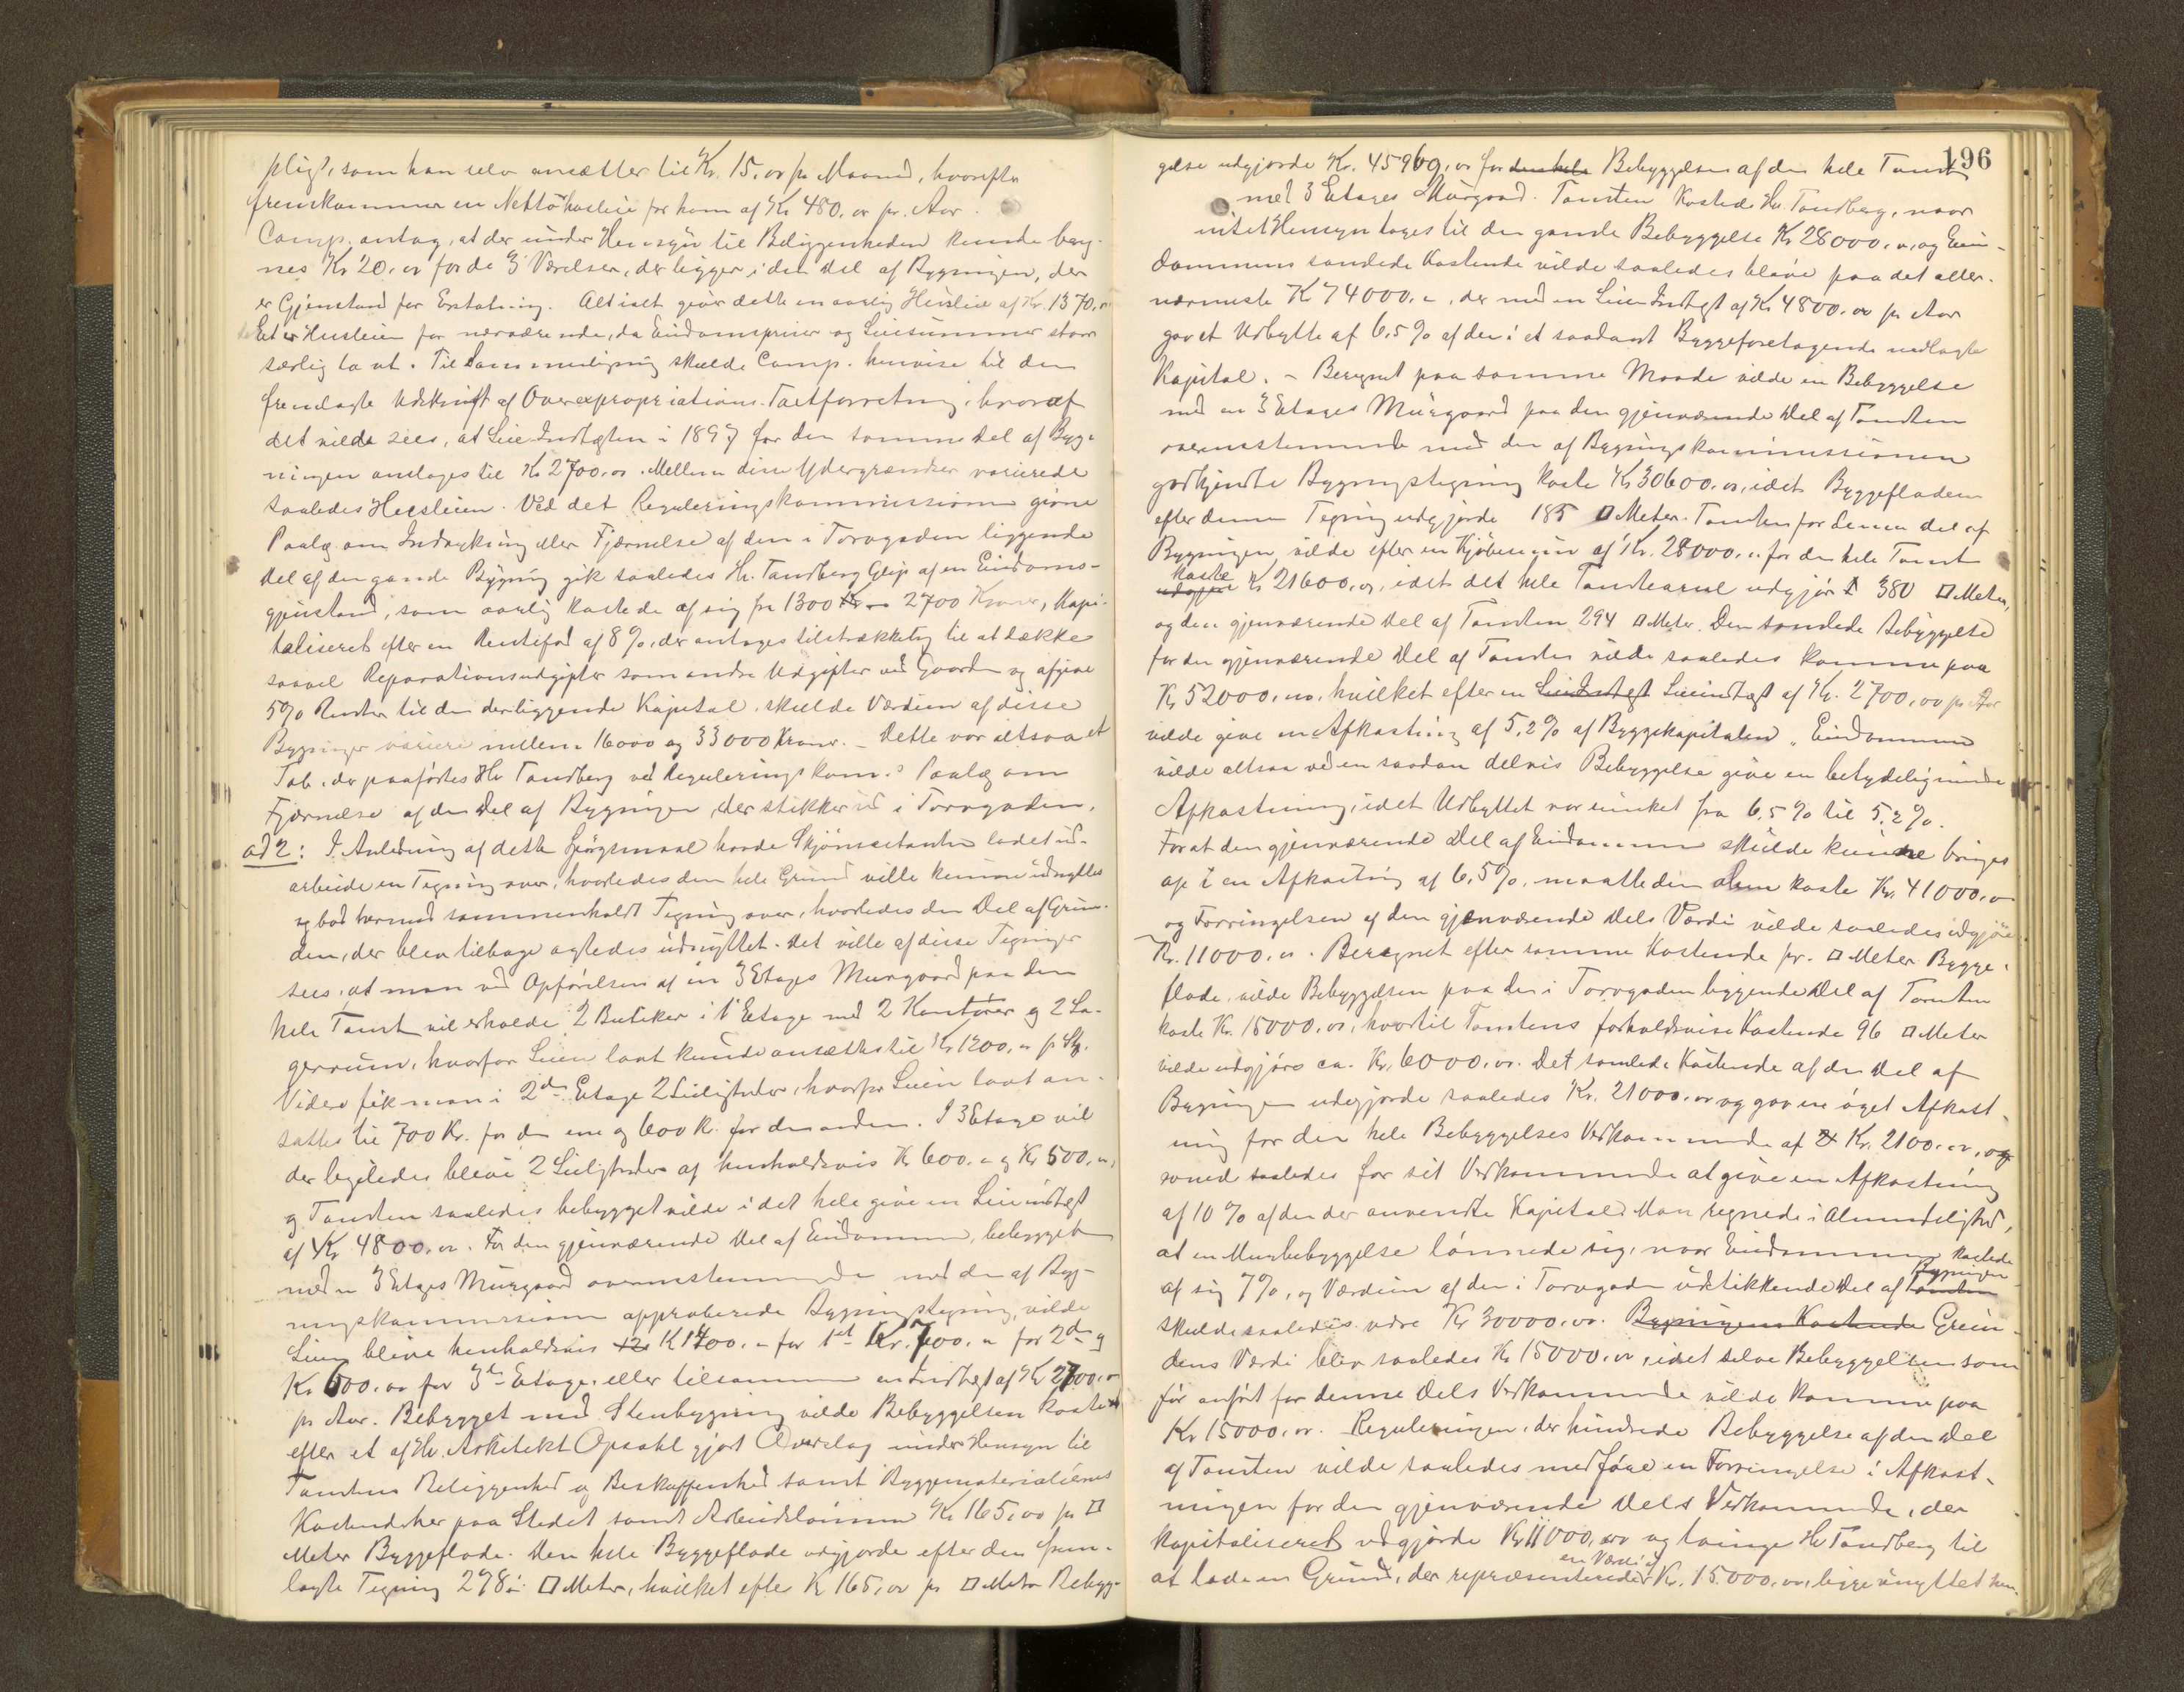 pligt, som han selv ansætter til Kr. 15.00 pr Maaned, hvorefter
fremkommer en Nettohusleie for ham af Kr 480.00 pr. Aar.
Comp. antog, at der under Hensyn til Beliggenheden kunde bereg-
nes Kr 20.00 for de 3 Værelser, der ligger i den Del af Bygningen, der
er Gjenstand for Erstatning. Alt ialt giver dette en aarlig Husleie af Kr. 1370.00
Det er Husleien for nærværende, da Eiendomspriser og Leiesummer staar
særlig lavt. Til Sammenligning skulde Comp. henvise til den
fremlagte Udskrift af Overexpropriations-Taxtforretning, hvoraf
det vilde sees, at Leie-Indtægten i 1897 for den samme Del af Byg-
ningen ansloges til Kr 2700.00. Mellem disse Ydergrændser varierede
saaledes Husleien. Ved det Reguleringskommissionen givne
Paalæg om Indrykning eller Fjærnelse af den i Torvgaden liggende
Del af den gamle Bygning gik saaledes Hr. Tandberg Glip af en Eiendoms-
gjenstand, som aarlig kastede af sig fra 1300 Kr - 2700 Kroner, Kapi-
taliseret efter en Rentefod af 8%, der antages tilstrækkelig til at dække
saavel Reparationsudgifter som andre Udgifter ved Gaarden og afgive
5% Renter til den derliggende Kapital, skulde Værdien af disse
Bygninger variere mellem 16000 og 33000 Kroner. - Dette var altsaa et
Tab, der paaførtes Hr Tandberg ved Reguleringskom.s Paalæg om
Fjærnelse af den Del af Bygningen, der stikker ud i Torvgaden.
ad 2: I Anledning af dette Spørgsmaal havde Skjønscitanten ladet ud-
arbeide en Tegning over, hvorledes den hele Grund ville kunne udnyttes
og bad hermed sammenholdt Tegning over, hvorledes den Del af Grun-
den, der blev tilbage agtedes udnyttet. Det ville af disse Tegninger
sees, at man ved Opførelsen af en 3 Etages Murgaard paa den
hele Tomt vil erholde 2 Butiker i 1ste Etage med 2 Kontorer og 2 La-
gerrum, hvorfor Leien lavt kunde ansættes til Kr 1200.00 pr Stk.
Videre fik man i 2den Etage 2 Leiligheder, hvorfor Leien lavt an-
sattes til 700 Kr. for den ene og 600 Kr. for den anden. I 3 Etage vil
der ligeledes blive 2 Leiligheder af henholdsvis Kr 600.00 og Kr 500.00,
og Tomten saaledes bebygget vilde i det hele give en Leieindtægt
af Kr 4800.00. For den gjenværende Del af Eiendommen, bebygget
med en 3 Etages Murgaard overensstemmende med den af Byg-
ningskommissionen approberede Bygningstegning, vilde
Leien blive henholdsvis Kr 1400.00 for 1ste Kr. 700.00 for 2den og
Kr 600.00 for 3die Etage, eller tilsammen en Indtægt af Kr 2700.00
pr Aar. Bebygget med Stenbygning vilde Bebyggelsen koste
efter et af Hr. Arkitekt Opsahl gjort Overslag under Hensyn til
Tomtens Beliggenhed og Beskaffenhed samt Byggematerialiernes
Kostende her paa Stedet samt Arbeidslønnen Kr 165.00 pr □
Meter Byggeflade. Den hele Byggeflade udgjorde efter den frem-
lagte Tegning 278 □ Meter, hvilket efter Kr 165.00 pr □ Meter Bebyg-
196
gelse udgjorde Kr. 45960.00 for den hele Bebyggelsen af den hele Tomt
med 3 Etages Murgaard. Tomten kostede Hr. Tandberg, naar
intet Hensyn tages til den gamle Bebyggelse Kr 28000.00, og Eien-
dommens samlede Kostende vilde saaledes blive paa det aller-
nærmeste Kr 74000.00, der med en Leie Indtægt af Kr 4800.00 pr Aar
gav et Udbytte af 6.5% af den i et saadant Byggeforetagende nedlagte
Kapital. - Beregnet paa samme Maade vilde en Bebyggelse
med en 3 Etages Murgaard paa den gjenværende Del af Tomten
overensstemmende med den af Bygningskommissionen
godkjendte Bygningstegning koste Kr 30600.00, idet Byggefladen
efter denne Tegning udgjorde 185 □ Meter. Tomten for denne Del af
Bygningen vilde efter en Kjøbesum af Kr. 28000.00 for den hele Tomt
koste
udgjøre Kr 21600.00, idet det hele Tomteareal udgjør 380 □ Meter,
og den gjenværende Del af Tomten 294 □ Meter. Den samlede Bebyggelse
for den gjenværende Del af Tomten vilde saaledes komme paa
Kr 52000.00, hvilket efter en Leieindtægt Leieindtægt af Kr. 2700,00 pr Aar
vilde give en Afkastning af 5,2% af Byggekapitalen. Eiendommen
vilde altsaa ved en saadan delvis Bebyggelse give en betydelig mindre
Afkastning, idet Udbyttet var sunket fra 6,5% til 5,2%.
For at den gjenværende Del af Eiendommen skulde kunne bringes
op i en Afkastning af 6,5%, maatte den alene koste Kr. 41000.00
og Forringelsen af den gjenværende Dels Værdi vilde saaledes udgjøre
Kr. 11000.00. Beregnet efter samme Kostende pr. □ Meter Bygge-
flade, vilde Bebyggelsen paa den i Torvgaden liggende Del af Tomten
koste Kr. 15000.00, hvortil Tomtens forholdsvise Kostende 96 □ Meter
vilde udgjøre ca. Kr. 6000.00. Det samlede Kostende af den Del af
Bygningen udgjorde saaledes Kr. 21000.00 og gav en øget Afkast-
ning for den hele Bebyggelses Vedkommende af Kr. 2100.00, og
saaledes for sit Vedkommende at give en Afkastning
af 10% af den der anvendte Kapital. Man regnede i Almindelighed,
at en Murbebyggelse lønnede sig, naar Eiendommen kastede
Bygningen
af sig 7%, og Værdien af den i Torvgaden udstikkende Del af Tomten
skulde saaledes være Kr 30000.00. Bygningens Kostende Grun-
dens Værdi blir saaledes Kr 15000.00, idet selve Bebyggelsen som
før anført for denne Dels Vedkommende vilde komme paa
Kr 15000.00. Reguleringen, der hindrede Bebyggelse af den Del
af Tomten vilde saaledes medføre en Forringelse i Afkast-
ningen for den gjenværende Dels Vedkommende, der
kapitaliseret udgjorde Kr 11000.00 og tvinge Hr Tandberg til
en Værdi af
at lade en Grund, der repræsenterede Kr. 15.000.00, ligge unyttet hen.